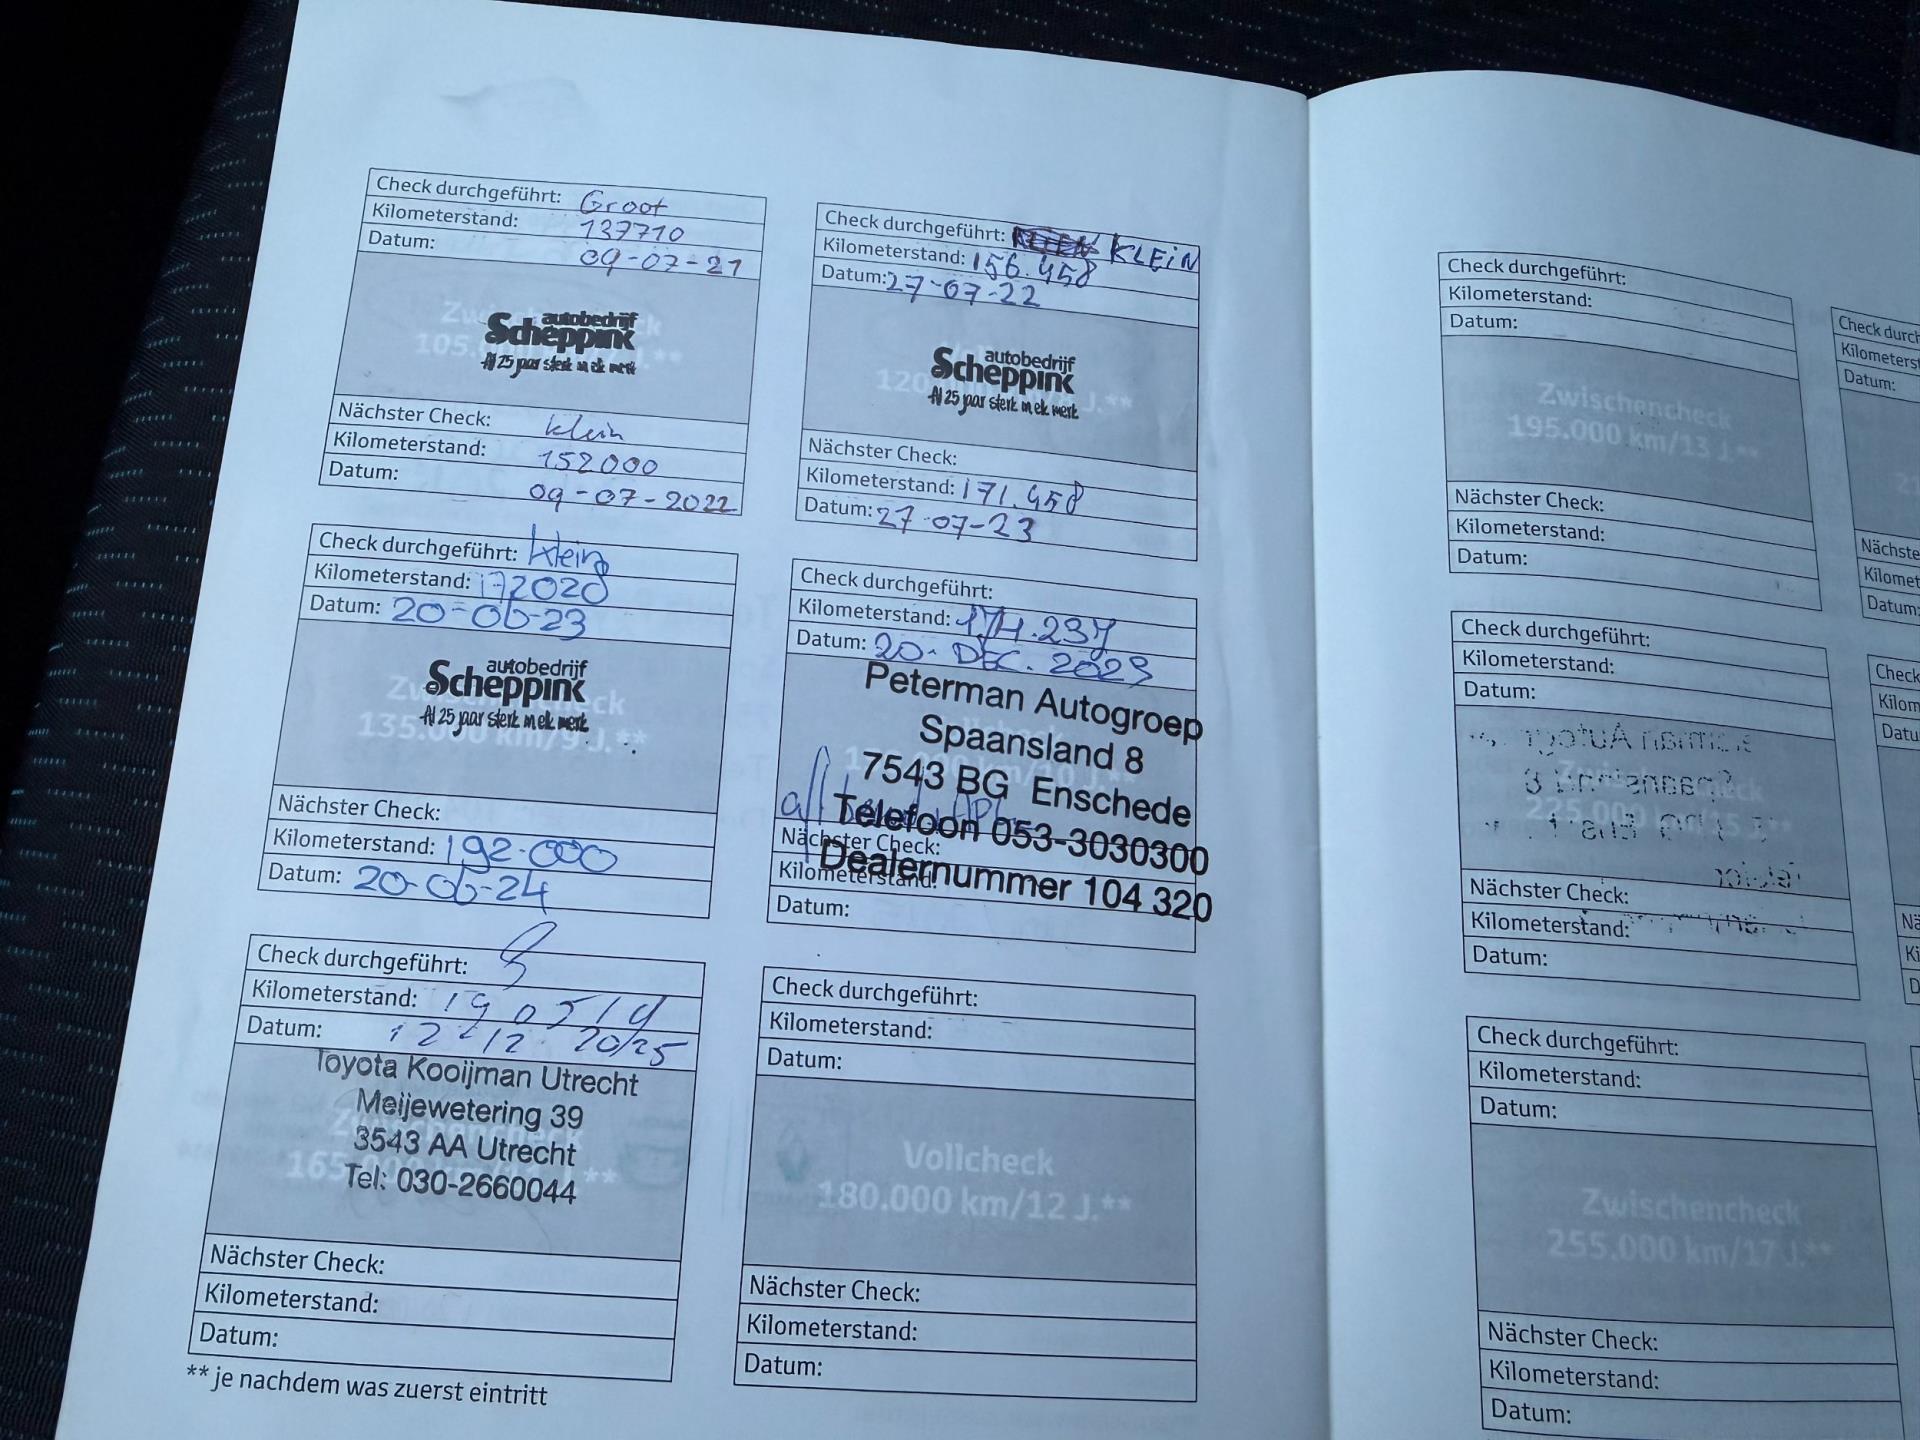 Check durchgeführt: Groot
Kilometerstand: 137710
Datum: 09-07-21
autobedrijf
Scheppink
Al 25 jaar sterk in elk merk
Nächster Check: klein
Kilometerstand: 152000
Datum: 09-07-2022
Check durchgeführt: KLEIN
Kilometerstand: 156.458
Datum: 27-07-22
autobedrijf
Scheppink
Al 25 jaar sterk in elk merk
Nächster Check:
Kilometerstand: 171.458
Datum: 27-07-23
Check durchgeführt: klein
Kilometerstand: 172020
Datum: 20-06-23
autobedrijf
Scheppink
135.000 km/9 J.**
Al 25 jaar sterk in elk merk
Nächster Check:
Kilometerstand: 192.000
Datum: 20-06-24
Check durchgeführt:
Kilometerstand: 174.237
Datum: 20-DEC. 2023
Peterman Autogroep
Spaansland 8
7543 BG Enschede
Telefoon 053-3030300
Dealernummer 104 320
Nächster Check:
Kilometerstand:
Datum:
Check durchgeführt:
Kilometerstand: 190514
Datum: 12-12-2025
Toyota Kooijman Utrecht
Meijewetering 39
3543 AA Utrecht
Tel: 030-2660044
Nächster Check:
Kilometerstand:
Datum:
** je nachdem was zuerst eintritt
Check durchgeführt:
Kilometerstand:
Datum:
Vollcheck
180.000 km/12 J.**
Nächster Check:
Kilometerstand:
Datum:
Check durchgeführt:
Kilometerstand:
Datum:
Zwischencheck
195.000 km/13 J.**
Nächster Check:
Kilometerstand:
Datum:
Check durchgeführt:
Kilometerstand:
Datum:
225.000 km/15 J.**
Nächster Check:
Kilometerstand:
Datum:
Check durchgeführt:
Kilometerstand:
Datum:
Zwischencheck
255.000 km/17 J.**
Nächster Check:
Kilometerstand:
Datum:
Check durch
Kilometerst
Datum:
Nächste
Kilomet
Datum:
Check
Kilom
Datu